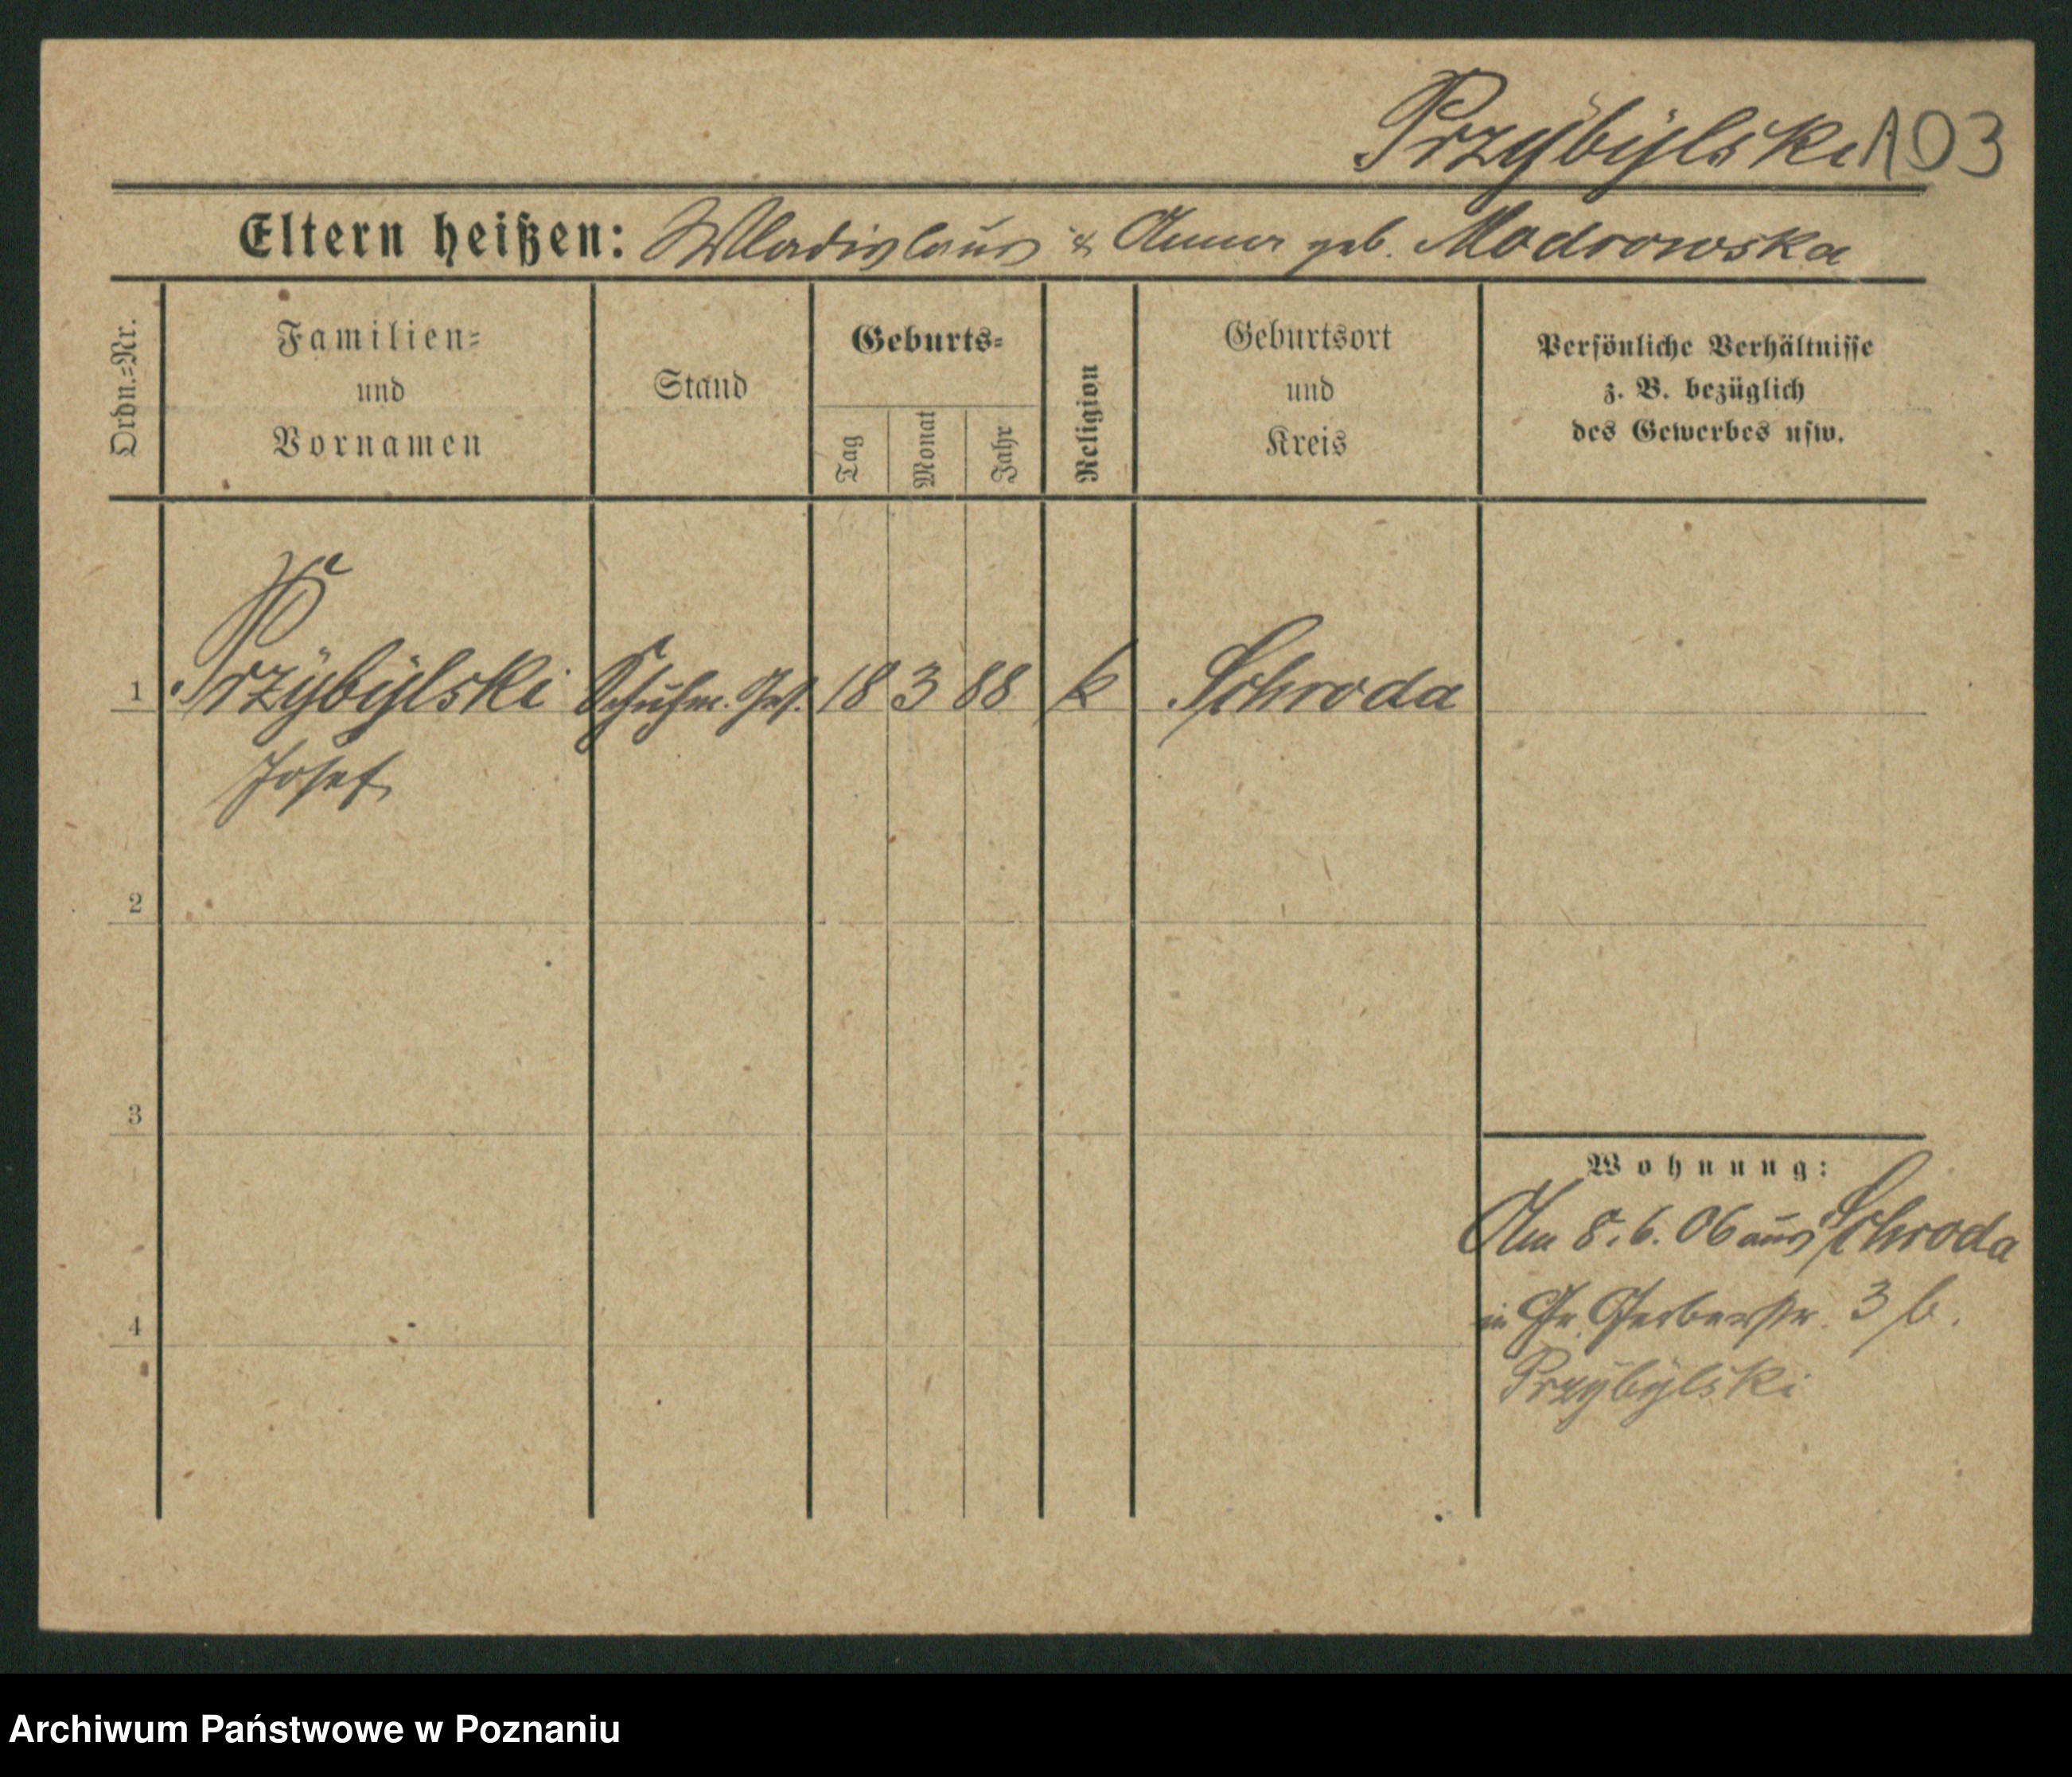 Przÿbÿlski 103
Eltern heißen: Wladislaus & Anna geb. Modrowska
Ordn.=Nr.
Familien= und Vornamen
Stand
Geburts=
Tag
Monat
Jahr
Religion
Geburtsort und Kreis
Persönliche Verhältnisse
z. B. bezüglich
des Gewerbes usw.
1 Przÿbÿlski Schuhm. Ges. 18 3 88 k Schroda
Josef
2
3
Wohnung:
Am 8. 6. 06 aus Schroda
in Gr. Gerberstr. 3 b.
4
Przÿbÿlski
Archiwum Państwowe w Poznaniu